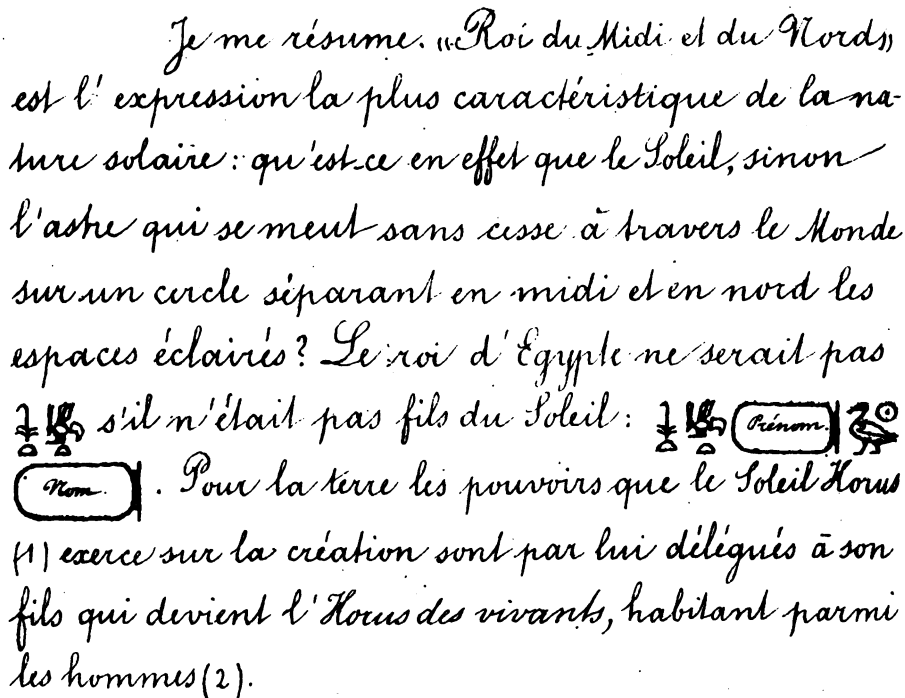 Je me résume. «Roi du Midi et du Nord»
est l'expression la plus caractéristique de la na-
ture solaire: qu'est-ce en effet que le Soleil, sinon
l'astre qui se meut sans cesse à travers le Monde
sur un cercle séparant en midi et en nord les
espaces éclairés? Le roi d'Egypte ne serait pas
𓇓𓏏𓆤𓏏 s'il n'était pas fils du Soleil: 𓇓𓏏𓆤𓏏 Prénom. 𓅭𓇳
Nom. . Pour la terre les pouvoirs que le Soleil Horus
(1) exerce sur la création sont par lui délégués à son
fils qui devient l'Horus des vivants, habitant parmi
les hommes (2).